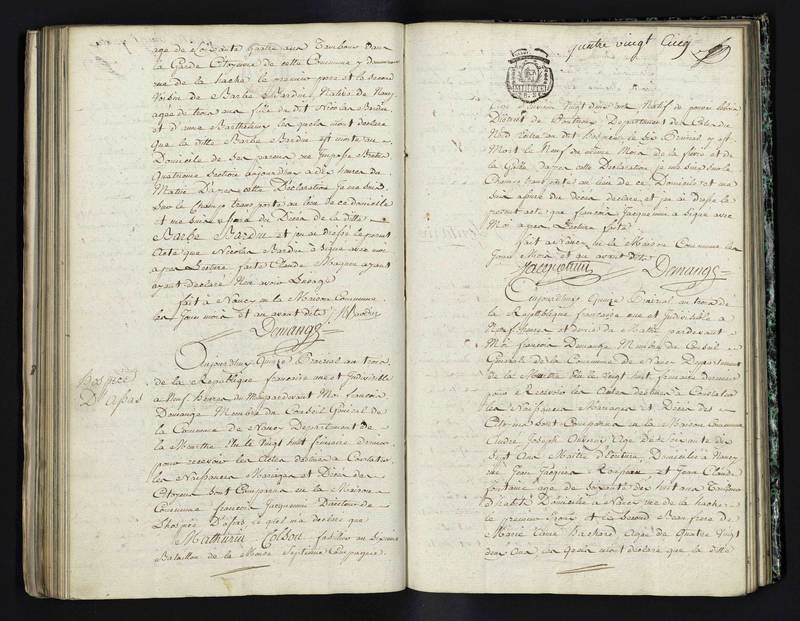 age de Soixante Quatre ans Tambour dans
la Garde Citoyenne de cette Commune y demeurant
rue de la hache le premier pere et le second
Voisin de Barbe Bardin Native de Nancy
agée de trois ans fille de dit Nicolas Bardin
et d'anne Barthelemy les quels mont declaré
que la ditte Barbe Bardin est morte au
Domicile de Ses parens rue
quatrieme Section aujourdhui a dix heures du
Matin Dapres cette Déclaration je me suis
Sur le Champ transporté au lieu de ce domicile
et me suis assuré du Décès de la ditte
Barbe Bardin et jen ai dressé le present
Acte que Nicolas Bardin a Signé avec moi
apres Lecture faite Claude
ayant declaré Non avoir L'usage
fait a Nancy en la Maison Commune
les Jour mois et an avant dits N Bardin
Demange
Hospice
D'assas
Aujourdhui Quinze Prairial an trois
de la République francaise une et Indivisible
a Neuf heures du Matin pardevant Moi francois
Demange Membre du Conseil Général de
la Commune de Nancy Departement de
la Meurthe Elu le Vingt huit frimaire dernier
pour recevoir les Actes destinés a Constater
les Naissances Mariages et Décès des
Citoyens Sont Comparus en la Maison
Commune francois Jacquemin Directeur de
Lhospice D'assas le quel ma declaré que
Mathurin Colson fusillier au
Bataillon de la Meuse Septieme Compagnie
quatre vingt Cinq
agé d'environ Vingt deux ans Natif de
District de Pontrieux Departement des Cotes du
Nord Entré au dit hospice le Six Prairial y est
Mort le Neuf du même Mois de la fievre et de
la Galle Dapres cette Déclaration je me suis Sur le
Champ transporté au lieu de ce Domicile et me
suis assuré du décès declaré, et jen ai dressé le
present acte que francois Jacquemin a Signé avec
Moi apres Lecture faite
fait a Nancy en la Maison Commune les
Jour Mois et an avant dits
Jacquemin Demange
Aujourdhui Quinze Prairial an trois de
la République francaise une et indivisible a
Neuf heures et demie du Matin pardevant
Moi francois Demange Membre du Conseil
Général de la Commune de Nancy Departement
de la Meurthe Elu le Vingt huit frimaire dernier
pour Recevoir les Actes destinés a Constater
les Naissances Mariages et Décès des
Citoyens Sont Comparus en la Maison Commune
Joseph agé de Soixante et
Sept Ans Maitre d'Ecriture Domicilié a Nancy
rue Jean Jacques Rousseau et Jean Claude
fontaine agé de Soixante dix huit ans
Domicilié a Nancy rue de la hache
le premier Epoux et le Second Beau frere de
Marie Anne Bachard Agée de Quatre Vingt
deux Ans les Quels mont declaré que la ditte